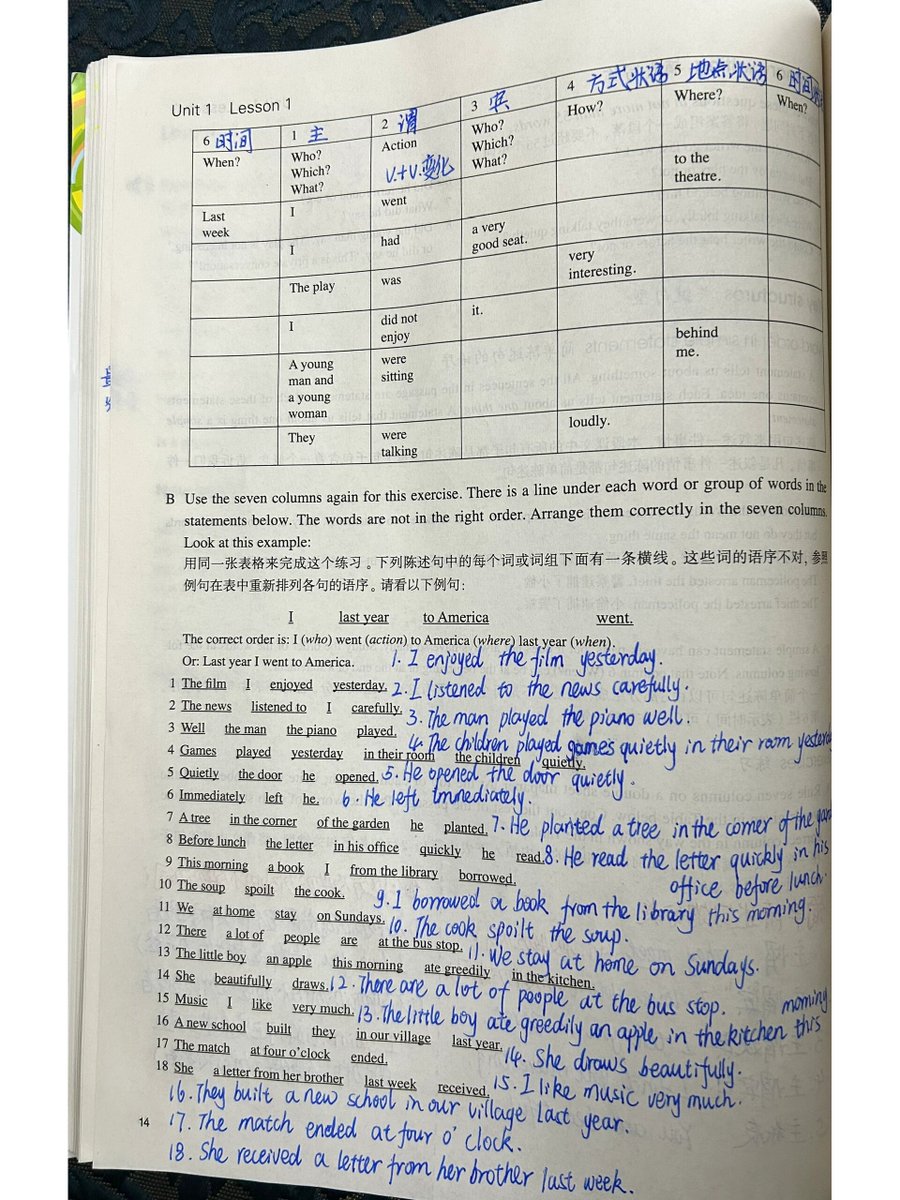 Unit 1 Lesson 1
6 时间 1 主 2 谓 3 宾 4 方式状语 5 地点状语 6 时间
When? Who? Which? What? Action V.+V.变化 Who? Which? What? How? Where? When?
I went to the theatre.
Last week I had a very good seat.
The play was very interesting.
I did not enjoy it.
A young man and a young woman were sitting behind me.
They were talking loudly.
B Use the seven columns again for this exercise. There is a line under each word or group of words in the
statements below. The words are not in the right order. Arrange them correctly in the seven columns.
Look at this example:
用同一张表格来完成这个练习。下列陈述句中的每个词或词组下面有一条横线。这些词的语序不对，参照
例句在表中重新排列各句的语序。请看以下例句：
I last year to America went.
The correct order is: I (who) went (action) to America (where) last year (when).
Or: Last year I went to America.
1 The film I enjoyed yesterday.
2 The news listened to I carefully.
3 Well the man the piano played.
4 Games played yesterday in their room the children quietly.
5 Quietly the door he opened.
6 Immediately left he.
7 A tree in the corner of the garden he planted.
8 Before lunch the letter in his office quickly he read.
9 This morning a book I from the library borrowed.
10 The soup spoilt the cook.
11 We at home stay on Sundays.
12 There a lot of people are at the bus stop.
13 The little boy an apple this morning ate greedily in the kitchen.
14 She beautifully draws.
15 Music I like very much.
16 A new school built they in our village last year.
17 The match at four o'clock ended.
18 She a letter from her brother last week received.
1. I enjoyed the film yesterday.
2. I listened to the news carefully.
3. The man played the piano well.
4. The children played games quietly in their room yesterday
5. He opened the door quietly.
6. He left immediately.
7. He planted a tree in the corner of the
8. He read the letter quickly in his
office before lunch.
9. I borrowed a book from the library this morning.
10. The cook spoilt the soup.
11. We stay at home on Sundays.
12. There are a lot of people at the bus stop.
13. The little boy ate greedily an apple in the kitchen this
morning
14. She draws beautifully.
15. I like music very much.
16. They built a new school in our village last year.
17. The match ended at four o'clock.
18. She received a letter from her brother last week.
14